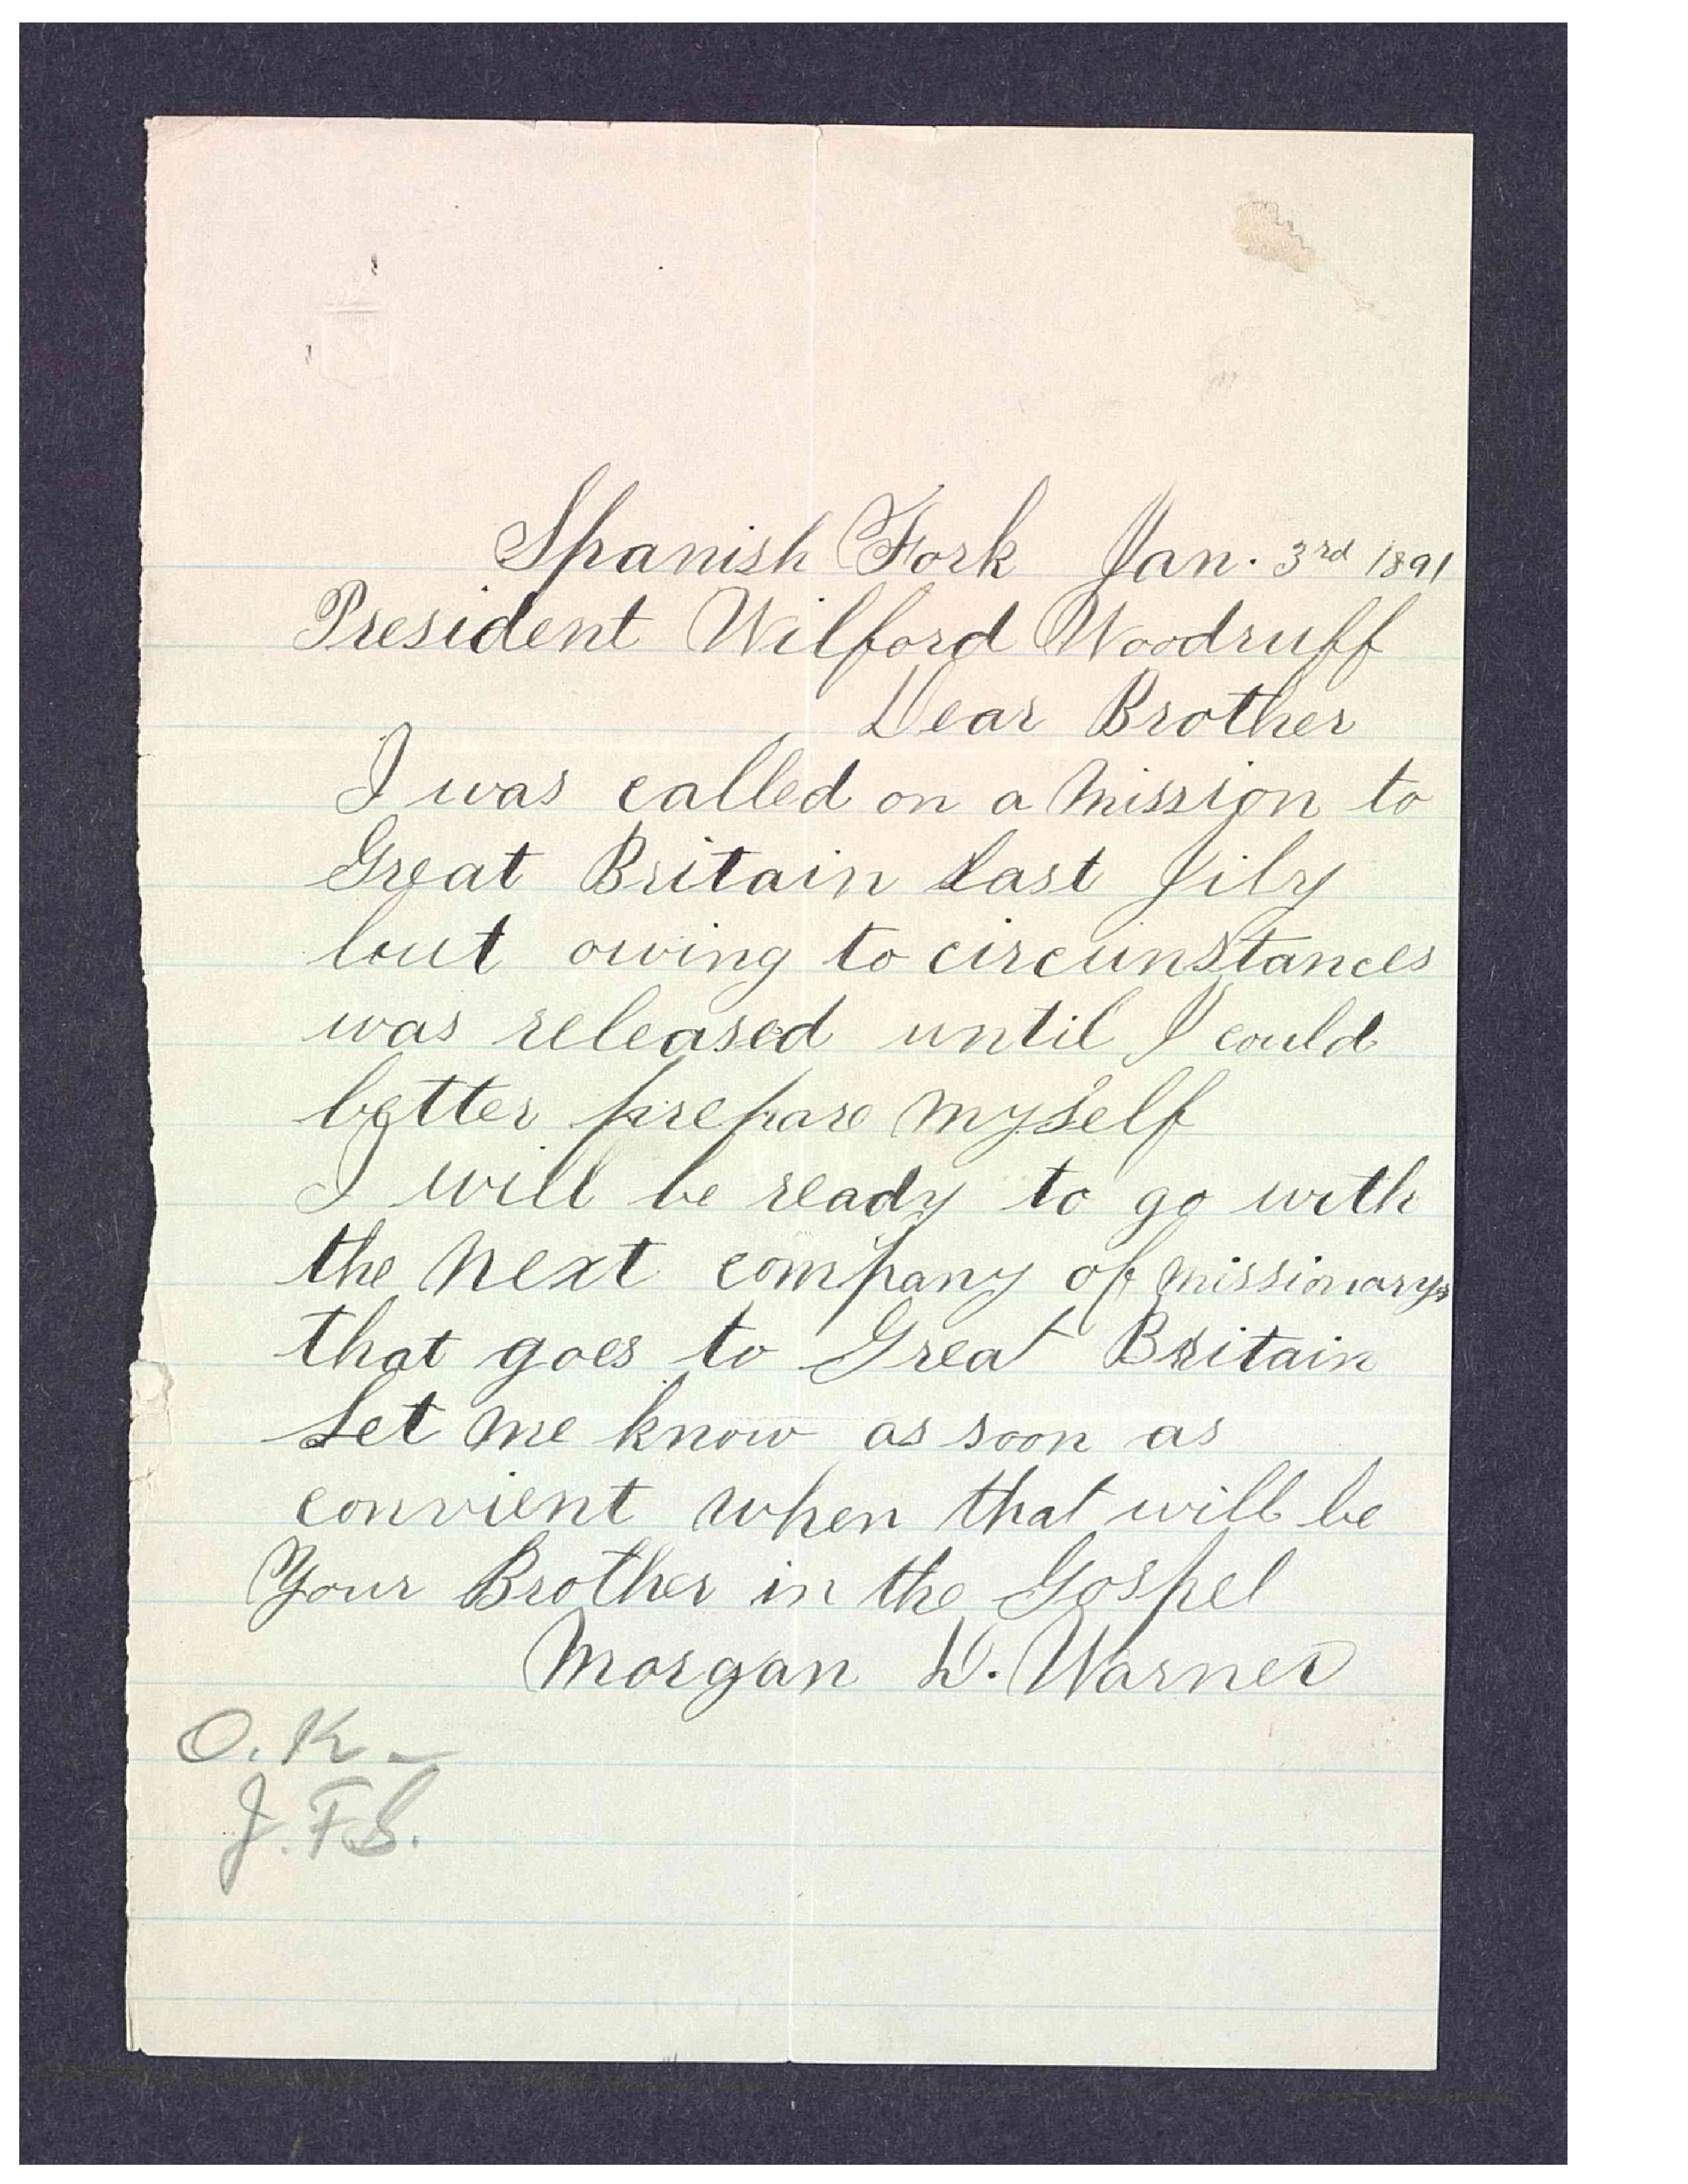 Spanish Fork Jan. 3rd 1891
President Wilford Woodruff
Dear Brother
I was called on a mission to
Great Britain last Jily
but owing to circunstances
was released until I could
better prepare myself
I will be ready to go with
the next company of missionarys
that goes to Great Britain
Let me know as soon as
convient when that will be
Your Brother in the Gospel
Morgan D. Warner
O.K –
J.F.S.